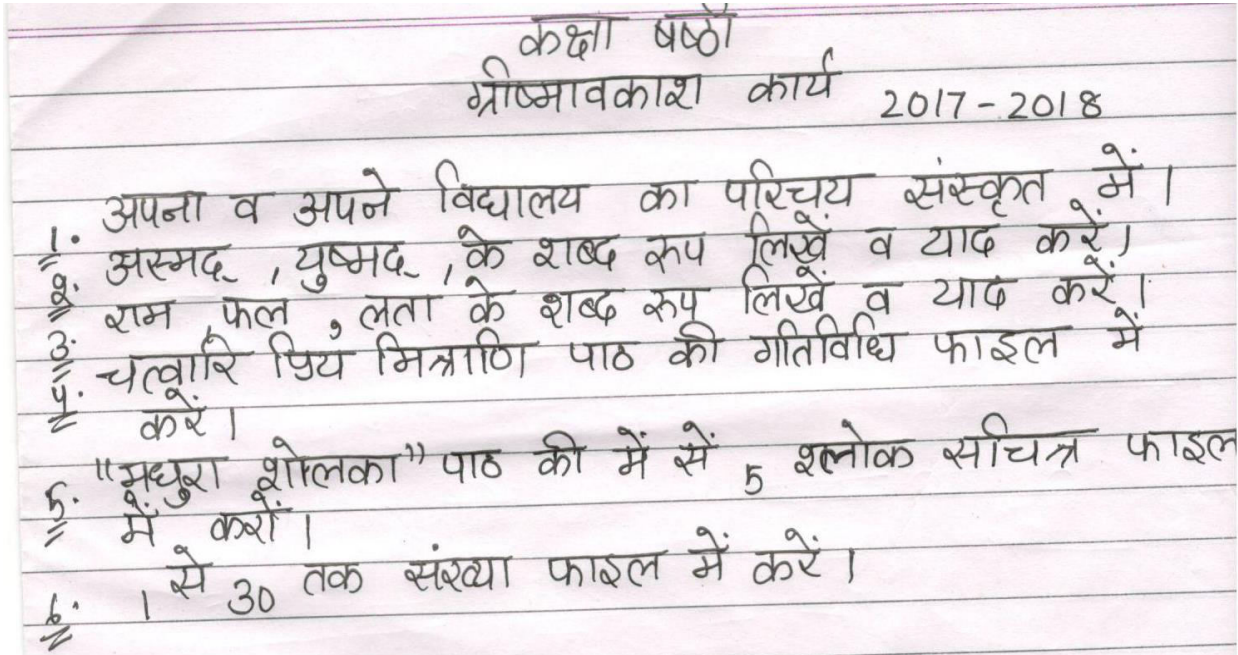 कक्षा षष्ठी
ग्रीष्मावकाश कार्य 2017-2018
1. अपना व अपने विद्यालय का परिचय संस्कृत में।
2. अस्मद्, युष्मद्, के शब्द रूप लिखें व याद करें।
3. राम, फल, लता के शब्द रूप लिखें व याद करें।
4. चत्वारि प्रिय मित्राणि पाठ की गतिविधि फाइल में
करें।
5. "मधुरा शोलिका" पाठ की में सें 5 श्लोक सचित्र फाइल
में करों।
6. 1 से 30 तक संख्या फाइल में करें।